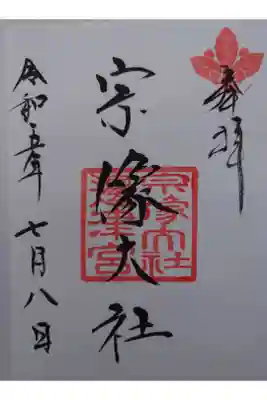 奉拝
宗像大社
宗像大社
辺津宮
令和五年
七月八日